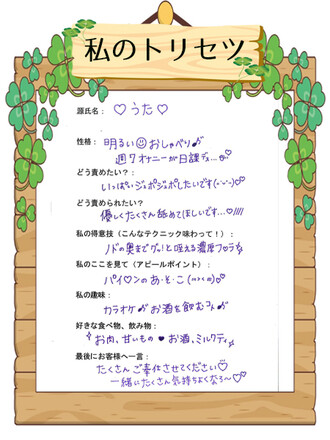 私のトリセツ
源氏名： ♡うた♡
性格： 明るい☺おしゃべり♪
週7オナニーが日課デス...
どう責めたい？：
いっぱいジュポジュポしたいです
どう責められたい？：
優しくたくさん舐めてほしいです...♡////
私の得意技（こんなテクニック味わって！）：
ノドの奥までグッ！と咥える濃厚フェラ
私のここを見て（アピールポイント）：
パイ♡ンのあ・そ・こ
私の趣味：
カラオケ♪お酒を飲むコト♪
好きな食べ物、飲み物：
お肉、甘いもの♥お酒、ミルクティ
最後にお客様へ一言：
たくさんご奉仕させてください♡
一緒にたくさん気持ちよくなろ〜♡